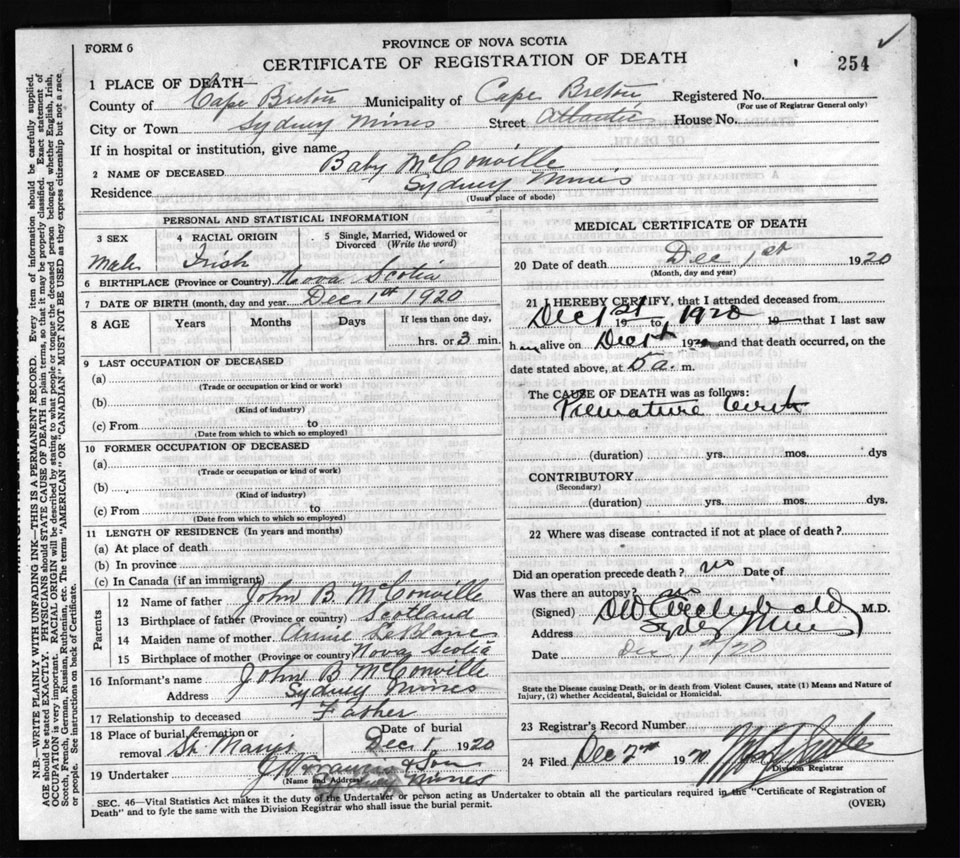 FORM 6
PROVINCE OF NOVA SCOTIA
CERTIFICATE OF REGISTRATION OF DEATH
254
1 PLACE OF DEATH—
County of Cape Breton Municipality of Cape Breton Registered No.
(For use of Registrar General only)
City or Town Sydney Mines Street Atlantic House No.
If in hospital or institution, give name
2 NAME OF DECEASED Baby McConville
Residence Sydney Mines
(Usual place of abode)
PERSONAL AND STATISTICAL INFORMATION
3 SEX 4 RACIAL ORIGIN 5 Single, Married, Widowed or
Divorced (Write the word)
Male Irish
6 BIRTHPLACE (Province or Country) Nova Scotia
7 DATE OF BIRTH (month, day and year) Dec 1st 1920
8 AGE Years Months Days If less than one day,
hrs. or 3 min.
9 LAST OCCUPATION OF DECEASED
(a)
(Trade or occupation or kind of work)
(b)
(Kind of industry)
(c) From to
(Date from which to which so employed)
10 FORMER OCCUPATION OF DECEASED
(a)
(Trade or occupation or kind of work)
(b)
(Kind of industry)
(c) From to
(Date from which to which so employed)
11 LENGTH OF RESIDENCE (In years and months)
(a) At place of death
(b) In province
(c) In Canada (if an immigrant)
Parents
12 Name of father John B McConville
13 Birthplace of father (Province or country) Scotland
14 Maiden name of mother Annie LeBlanc
15 Birthplace of mother (Province or country) Nova Scotia
16 Informant's name John B McConville
Address Sydney Mines
17 Relationship to deceased Father
18 Place of burial, cremation or Date of burial
removal St. Mary's Dec 1 1920
19 Undertaker & Son
(Name and Address) Sydney Mines
MEDICAL CERTIFICATE OF DEATH
20 Date of death Dec 1st 1920
(Month, day and year)
21 I HEREBY CERTIFY, that I attended deceased from
Dec 1st 19 to 1920 19 that I last saw
h im alive on Dec 1st 192 and that death occurred, on the
date stated above, at 5 a. m.
The CAUSE OF DEATH was as follows:
Premature birth
(duration) yrs. mos. dys
CONTRIBUTORY
(Secondary)
(duration) yrs. mos. dys.
22 Where was disease contracted if not at place of death?
Did an operation precede death? no Date of
Was there an autopsy? no
(Signed) M.D.
Address Sydney Mines
Date Dec 1st/20
State the Disease causing Death, or in death from Violent Causes, state (1) Means and Nature of
Injury, (2) whether Accidental, Suicidal or Homicidal.
23 Registrar's Record Number
24 Filed Dec 2nd 1920
Division Registrar
SEC. 46—Vital Statistics Act makes it the duty of the Undertaker or person acting as Undertaker to obtain all the particulars required in the "Certificate of Registration of
Death" and to fyle the same with the Division Registrar who shall issue the burial permit.
(OVER)
N.B.—WRITE PLAINLY WITH UNFADING INK—THIS IS A PERMANENT RECORD. Every item of information should be carefully supplied.
AGE should be stated EXACTLY. PHYSICIANS should STATE CAUSE OF DEATH in plain terms, so that it may be properly classified. Exact statement of
OCCUPATION is very important. RACIAL ORIGIN will be described by stating to what people or tongue the deceased person belonged whether English, Irish,
Scotch, French, German, Russian, Ruthenian, etc. The terms "AMERICAN" OR "CANADIAN" MUST NOT BE USED as they express citizenship but not a race
or people. See instructions on back of Certificate.